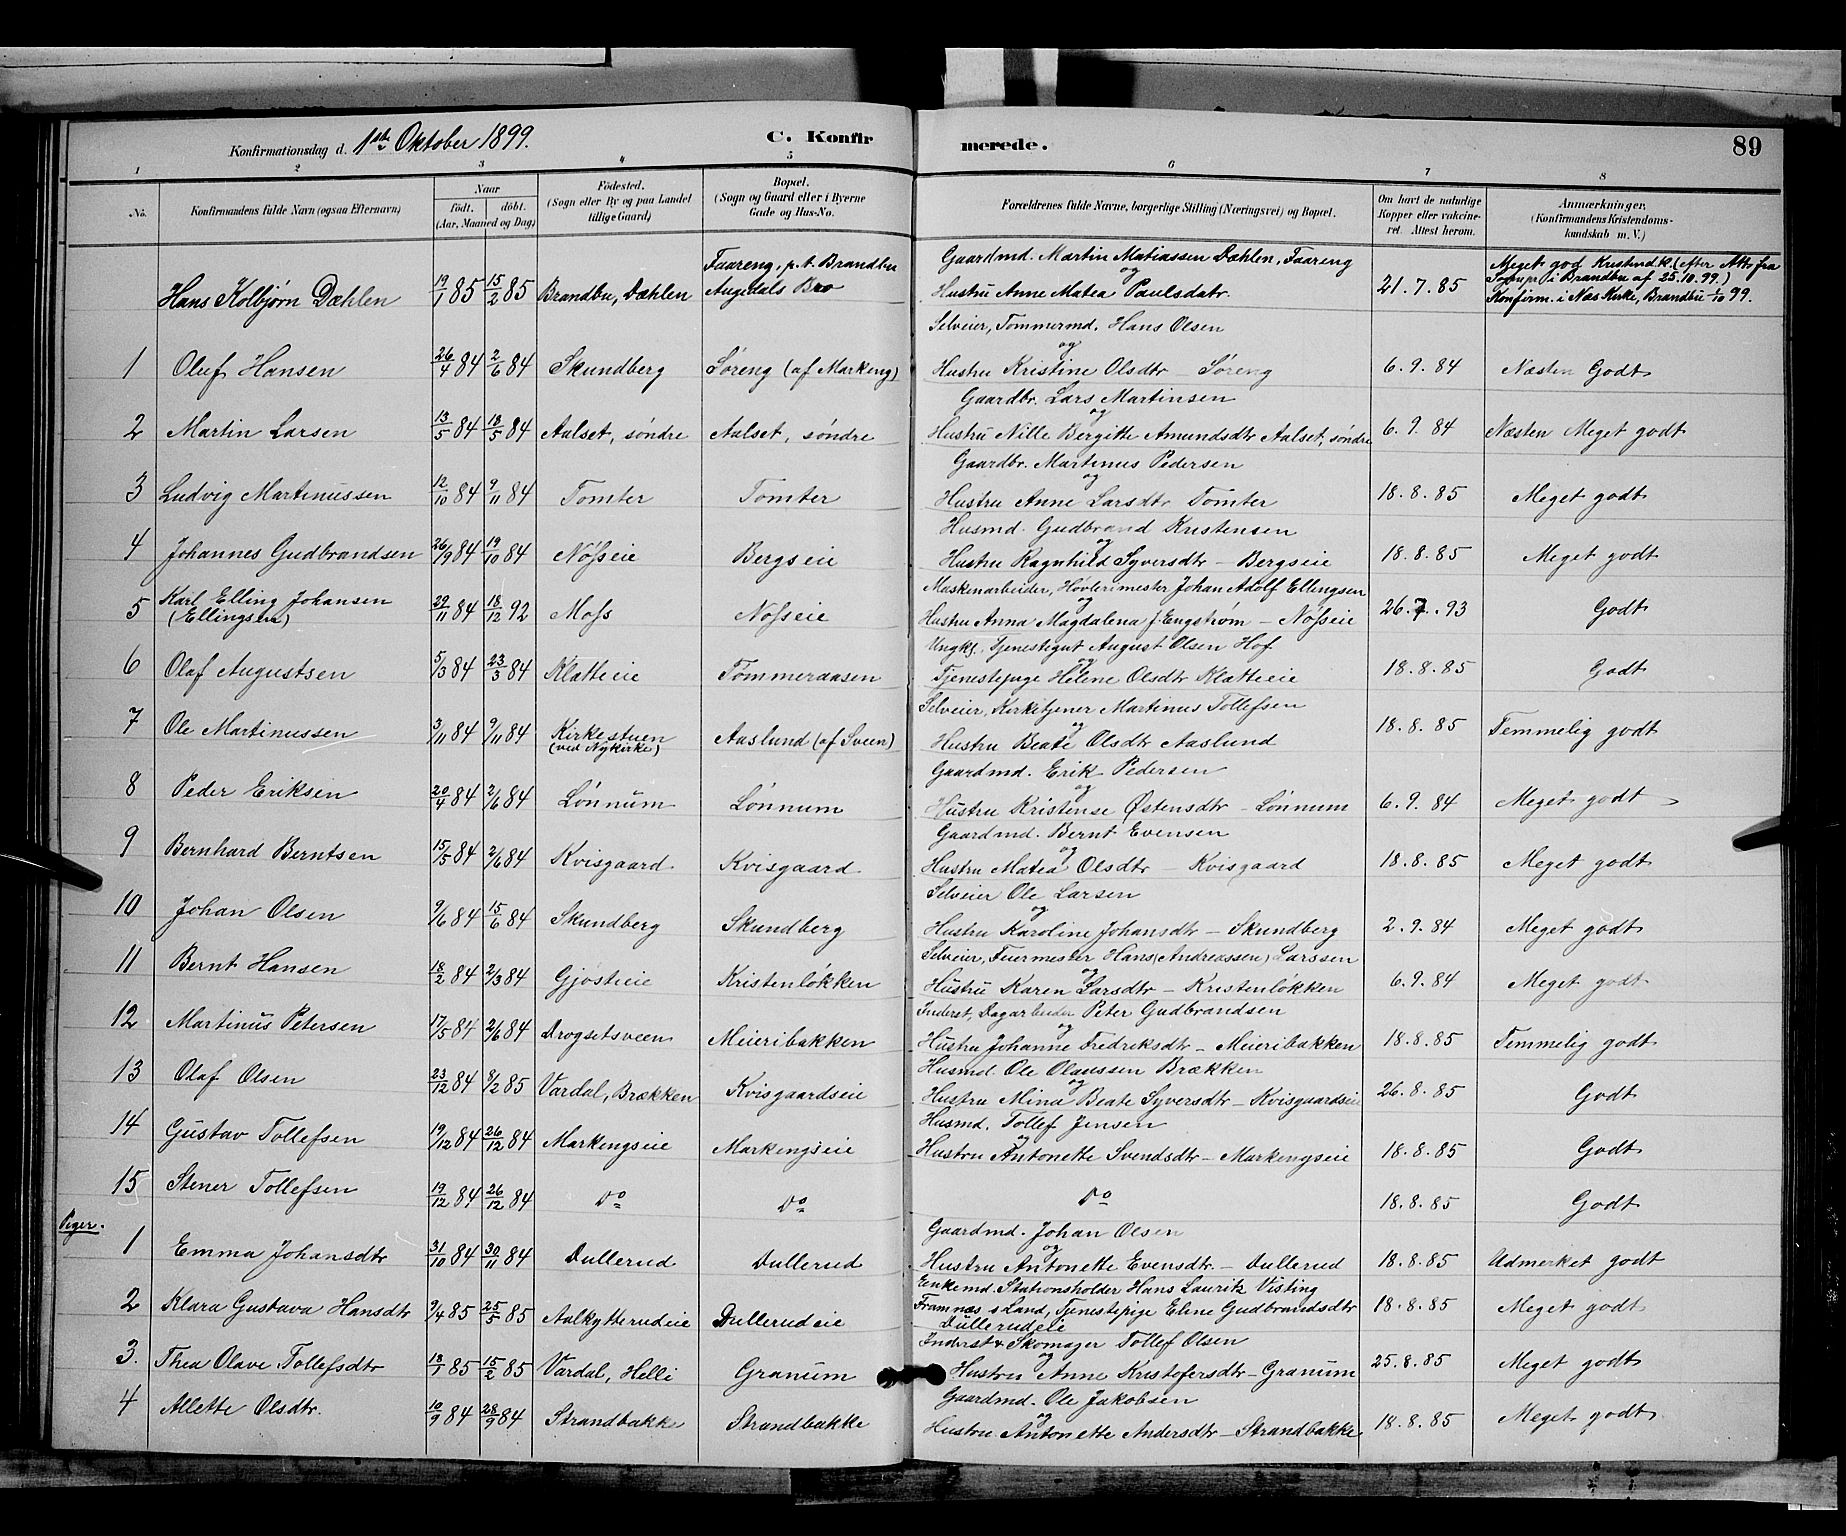 Konfirmationsdag d. 1ste Oktober 1899. C. Konfirmerede. 89
1 2 3 4 5 6 7 8
No. Konfirmandens fulde Navn (ogsaa Efternavn) Naar født. døbt. (Aar, Maaned og Dag) Fødested. (Sogn eller By og paa Landet tillige Gaard) Bopæl. (Sogn og Gaard eller i Byerne Gade og Hus-No. Forældrenes fulde Navne, borgerlige Stilling (Næringsvei) og Bopæl. Om havt de naturlige Kopper eller vakcineret. Attest herom. Anmærkninger. (Konfirmandens Kristendomskundskab m. V.)
Hans Kolbjørn Dæhlen 19/1 85 15/2 85 Brandbu, Dæhlen Faareng, p.t. Brandbu Augedals Bro Gaardmd. Martin Matiassen Dæhlen, Faareng og Hustru Anne Matea Paulsdatr. 21.7.85 Meget god Kristendk. (efter Att. fra Sognepr. i Brandbu af 25.10.99.) Konfirm. i Næs Kirke, Brandbu 1/10 99.
1 Oluf Hansen 26/4 84 2/6 84 Skundberg Søreng (af Markeng) Selveier, Tommermd. Hans Olsen og Hustru Kristine Olsdtr – Søreng 6.9.84 Næsten Godt
2 Martin Larsen 13/5 84 18/5 84 Aalset, søndre Aalset, søndre Gaardbr. Lars Martinsen og Hustru Nille Bergitte Amundsdtr Aalset, søndre 6.9.84 Næsten Meget godt
3 Ludvig Martinussen 12/10 84 9/11 84 Tomter Tomter Gaardbr. Martinus Pedersen og Hustru Anne Larsdtr Tomter 18.8.85 Meget godt
4 Johannes Gudbrandsen 26/9 84 19/10 84 Nøsseie Bergseie Husmd. Gudbrand Kristensen og Hustru Ragnhild Syversdtr – Bergseie 18.8.85 Meget godt
5 Karl Elling Johansen (Ellingsen) 29/11 84 18/12 92 Moss Nøsseie Maskenarbeider, Høvlerimester Johan Adolf Ellingsen og Hustru Anna Magdalena f. Engstrøm – Nøsseie 26.7.93 Godt
6 Olaf Augustsen 5/3 84 23/3 84 Klætteie Tommeraasen Ungk., Tjenestegut August Olsen Hof og Tjenestepige Helene Olsdtr Klætteie 18.8.85 Godt
7 Ole Martinussen 3/11 84 9/11 84 Kirkestuen (ved Nykirke) Aaslund (af Sveen) Selveier, Kirketjener Martinus Tollefsen og Hustru Beate Olsdtr Aaslund 18.8.85 Temmelig godt
8 Peder Eriksen 20/4 84 2/6 84 Lønnum Lønnum Gaardmd. Erik Pedersen og Hustru Kristense Østensdtr – Lønnum 6.9.84 Meget godt
9 Bernhard Berntsen 15/5 84 2/6 84 Kvisgaard Kvisgaard Gaardmd. Bernt Evensen og Hustru Matea Olsdtr – Kvisgaard 18.8.85 Meget godt
10 Johan Olsen 9/6 84 15/6 84 Skundberg Skundberg Selveier Ole Larsen og Hustru Karoline Johansdtr – Skundberg 2.9.84 Meget godt
11 Bernt Hansen 18/2 84 2/3 84 Gjøsteie Kristenløkken Selveier, Feiermester Hans (Andreassen) Larssen og Hustru Karen Larsdtr – Kristenløkken 6.9.84 Meget godt
12 Martinus Petersen 17/5 84 2/6 84 Drogsetsveen Meieribakken Inderst, Dagarbeider Peter Gudbrandsen og Hustru Johanne Fredriksdtr – Meieribakken 18.8.85 Temmelig godt
13 Olaf Olsen 23/12 84 8/2 85 Vardal, Brækken Kvisgaardseie Husmd. Ole Olaussen Brækken og Hustru Mina Beate Syversdtr – Kvisgaardseie 26.8.85 Godt
14 Gustav Tollefsen 19/12 84 26/12 84 Markengseie Markengseie Husmd. Tollef Jensen og Hustru Antonette Svendsdtr – Markengseie 18.8.85 Godt
15 Stener Tollefsen 19/12 84 26/12 84 Do Do Do 18.8.85 Godt
Piger.
1 Emma Johansdtr 31/10 84 30/11 84 Dullerud Dullerud Gaardmd. Johan Olsen og Hustru Antonette Evensdtr. – Dullerud 18.8.85 Udmerket godt
2 Klara Gustava Hansdtr 9/4 85 25/5 85 Aalkytterudeie Dullerudeie Enkemd. Stationsholder Hans Lauritz Visting Framnæs s Land, Tjenestepige Eline Gudbrandsdtr Dullerudeie 18.8.85 Meget godt
3. Thea Olave Tollefsdtr 18/1 85 15/2 85 Vardal, Helli Granum Inderst & Skomager Tollef Olsen og Hustru Anne Kristofersdtr – Granum 25.8.85 Meget godt
4 Allette Olsdtr. 10/9 84 28/9 84 Strandbakke Strandbakke Gaardmd. Ole Jakobsen og Hustru Antonette Andersdtr – Strandbakke 18.8.85 Meget godt